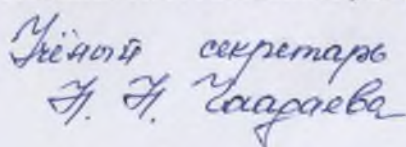 Учёный секретарь
Н. Н. Чаадаева